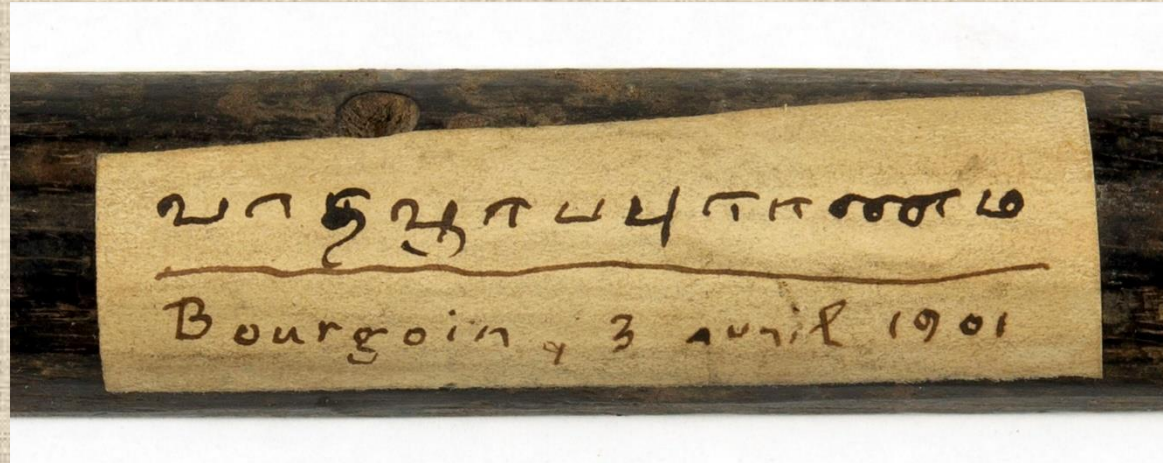 வாதவூரபபுராணம
Bourgoin, 3 avril 1901